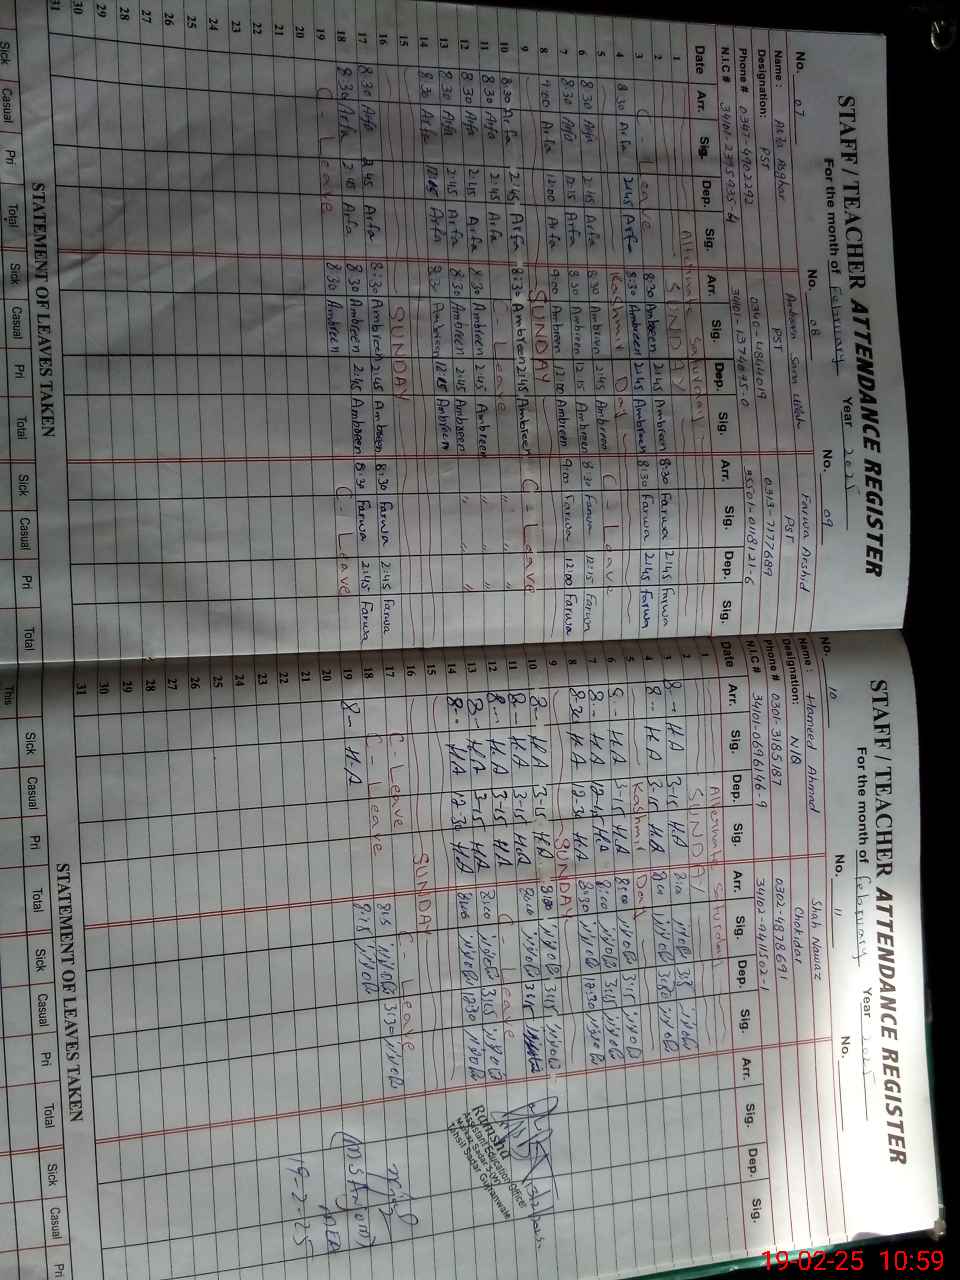 STAFF / TEACHER ATTENDANCE REGISTER
For the month of February Year 2025
No. 07 No. 08 No. 09
Name : Arfa Asghar Ambreen Sana Ullah Farwa Arshid
Designation: PST PST PST
Phone # 0347-4902292 0340-4864019 0313-7177689
N.I.C # 34101-2395935-4 34101-1374075-0 35501-0118121-6
Date Arr. Sig. Dep. Sig. Arr. Sig. Dep. Sig. Arr. Sig. Dep. Sig.
1 Alternate Saturday
2 SUNDAY
3 C - Leave 8:30 Ambreen 2:45 Ambreen 8:30 Farwa 2:45 Farwa
4 8:30 Arfa 2:45 Arfa 8:30 Ambreen 2:45 Ambreen 8:30 Farwa 2:45 Farwa
5 Kashmir Day
6 8:30 Arfa 2:45 Arfa 8:30 Ambreen 2:45 Ambreen C - Leave
7 8:30 Arfa 12:15 Arfa 8:30 Ambreen 12:15 Ambreen 8:30 Farwa 12:15 Farwa
8 9:00 Arfa 12:00 Arfa 9:00 Ambreen 12:00 Ambreen 9:00 Farwa 12:00 Farwa
9 SUNDAY
10 8:30 Arfa 2:45 Arfa 8:30 Ambreen 2:45 Ambreen C - Leave
11 8:30 Arfa 2:45 Arfa C - Leave " "
12 8:30 Arfa 2:45 Arfa 8:30 Ambreen 2:45 Ambreen " "
13 8:30 Arfa 2:45 Arfa 8:30 Ambreen 2:45 Ambreen " "
14 8:30 Arfa 12:15 Arfa 8:30 Ambreen 12:15 Ambreen
15
16 SUNDAY
17 8:30 Arfa 2:45 Arfa 8:30 Ambreen 2:45 Ambreen 8:30 Farwa 2:45 Farwa
18 8:30 Arfa 2:45 Arfa 8:30 Ambreen 2:45 Ambreen 8:30 Farwa 2:45 Farwa
19 C - Leave 8:30 Ambreen C - Leave
20
21
22
23
24
25
26
27
28
29
30
31
STATEMENT OF LEAVES TAKEN
Sick Casual Pri Total Sick Casual Pri Total Sick Casual Pri Total
STAFF / TEACHER ATTENDANCE REGISTER
For the month of February Year 2025
No. 10 No. 11 No.
Name : Hameed Ahmad Shah Nawaz
Designation: N/Q Chokidar
Phone # 0301-3185187 0302-4878691
N.I.C # 34101-0696146-9 34102-9411502-1
Date Arr. Sig. Dep. Sig. Arr. Sig. Dep. Sig. Arr. Sig. Dep. Sig.
1 Alternate Saturday
2 SUNDAY
3 8-- H.A 3-15 H.A
4 8-- H.A 3-15 H.A
5 Kashmir Day
6 8-- H.A 3-15 H.A 8:00
7 8-- H.A 12-45 H.A 8:00
8 8-30 H.A 12-30 H.A 8:30
9 SUNDAY
10 8-- H.A 3-15 H.A 8:00
11 8-- H.A 3-15 H.A 8:00
12 8-- H.A 3-15 H.A C - Leave
13 8-- H.A 3-15 H.A 8:00
14 8-- H.A 12-30 H.A 8:00
15
16 SUNDAY
17 C - Leave C - Leave
18 C - Leave 8:15 3:30
19 8-- H.A 8:15
20
21
22
23
24
25
26
27
28
29
30
31
Assistant Education Officer
Markaz Sadar-3 (W)
Tehsil Sadar Gujranwala
19-2-25
STATEMENT OF LEAVES TAKEN
This Sick Casual Pri Total Sick Casual Pri Total Sick Casual Pri
19-02-25 10:59